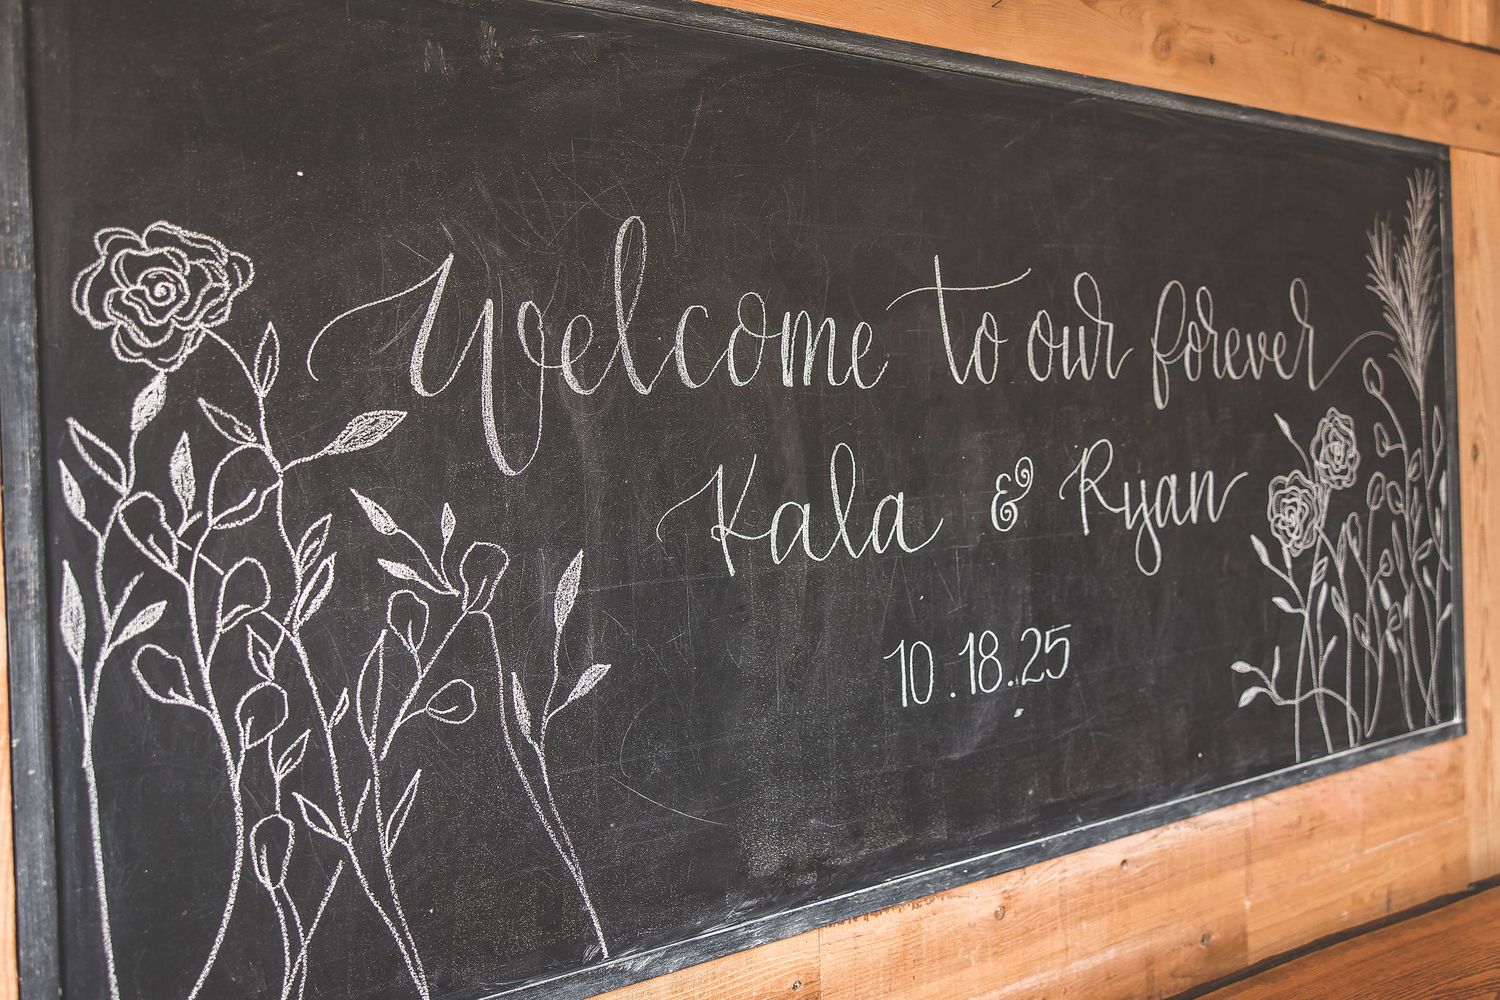 Welcome to our forever
Kala & Ryan
10.18.25